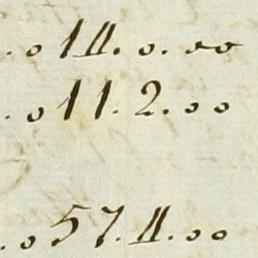 .014.0.00
.011.2.00
.057.4.00